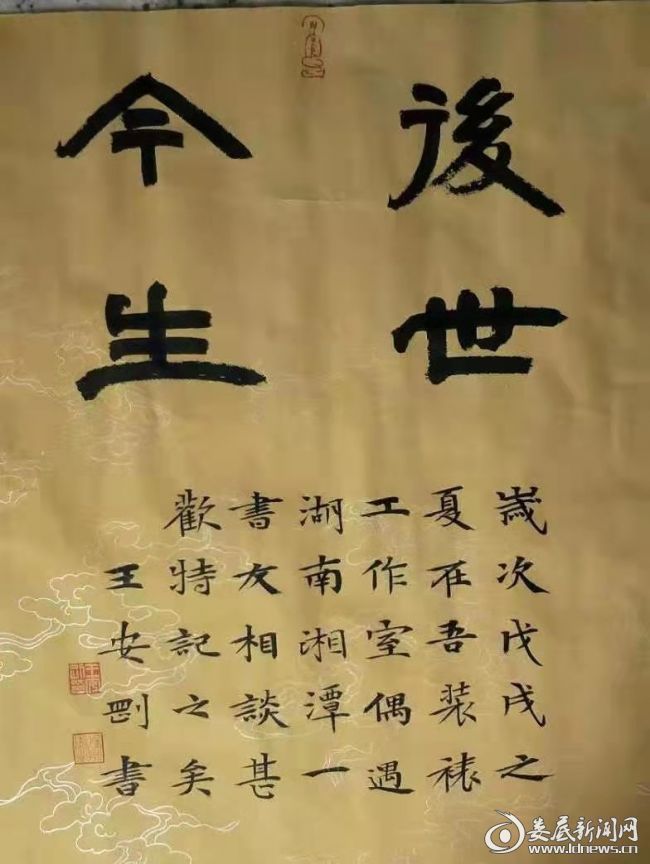 後世
今生
歲次戊戌之
夏在吾装裱
工作室偶遇
湖南湘潭一
書友相談甚
歡特記之矣
王安剛書
娄底新闻网
www.ldnews.cn